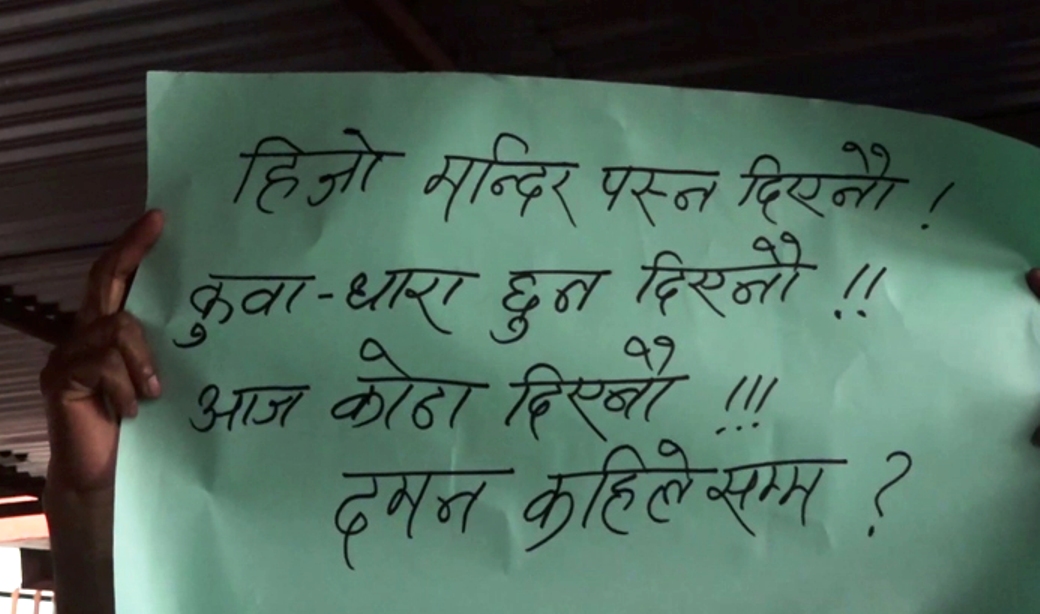 हिजो मन्दिर पस्न दिएनौ !
कुवा-धारा छुन दिएनौ !!
आज कोठा दिएनौ !!!
दमन कहिलेसम्म ?